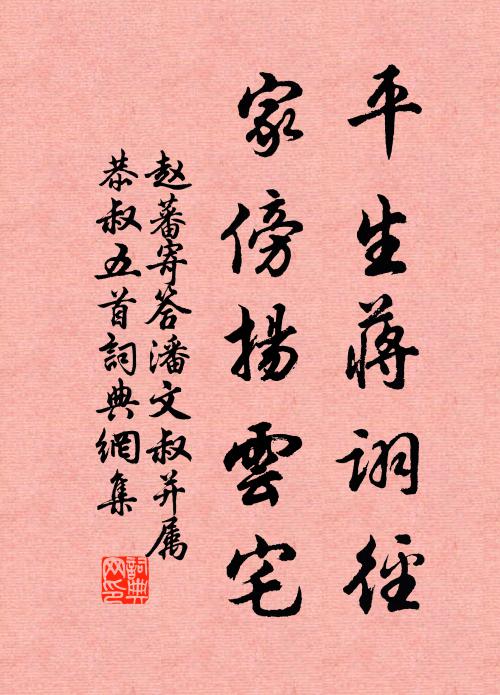 平生蔣詡徑
家傍揚雲宅
赵蕃寄答潘文叔并属
恭叔五首詞典網集
詞典
网印